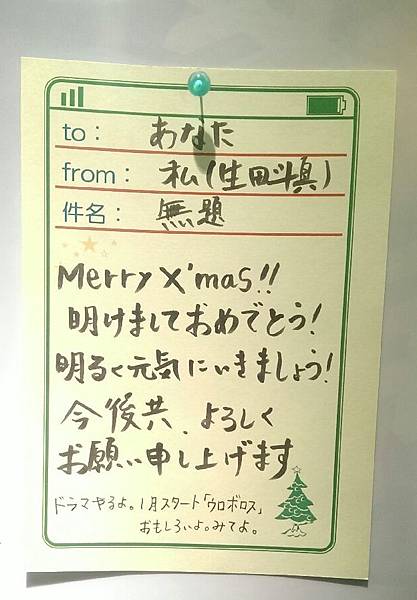 to: あなた
from: 私(生田斗真)
件名: 無題
Merry X'mas!!
明けましておめでとう!
明るく元気にいきましょう!
今後共、よろしく
お願い申し上げます
ドラマやるよ。1月スタート「ウロボロス」
おもしろいよ。みてよ。